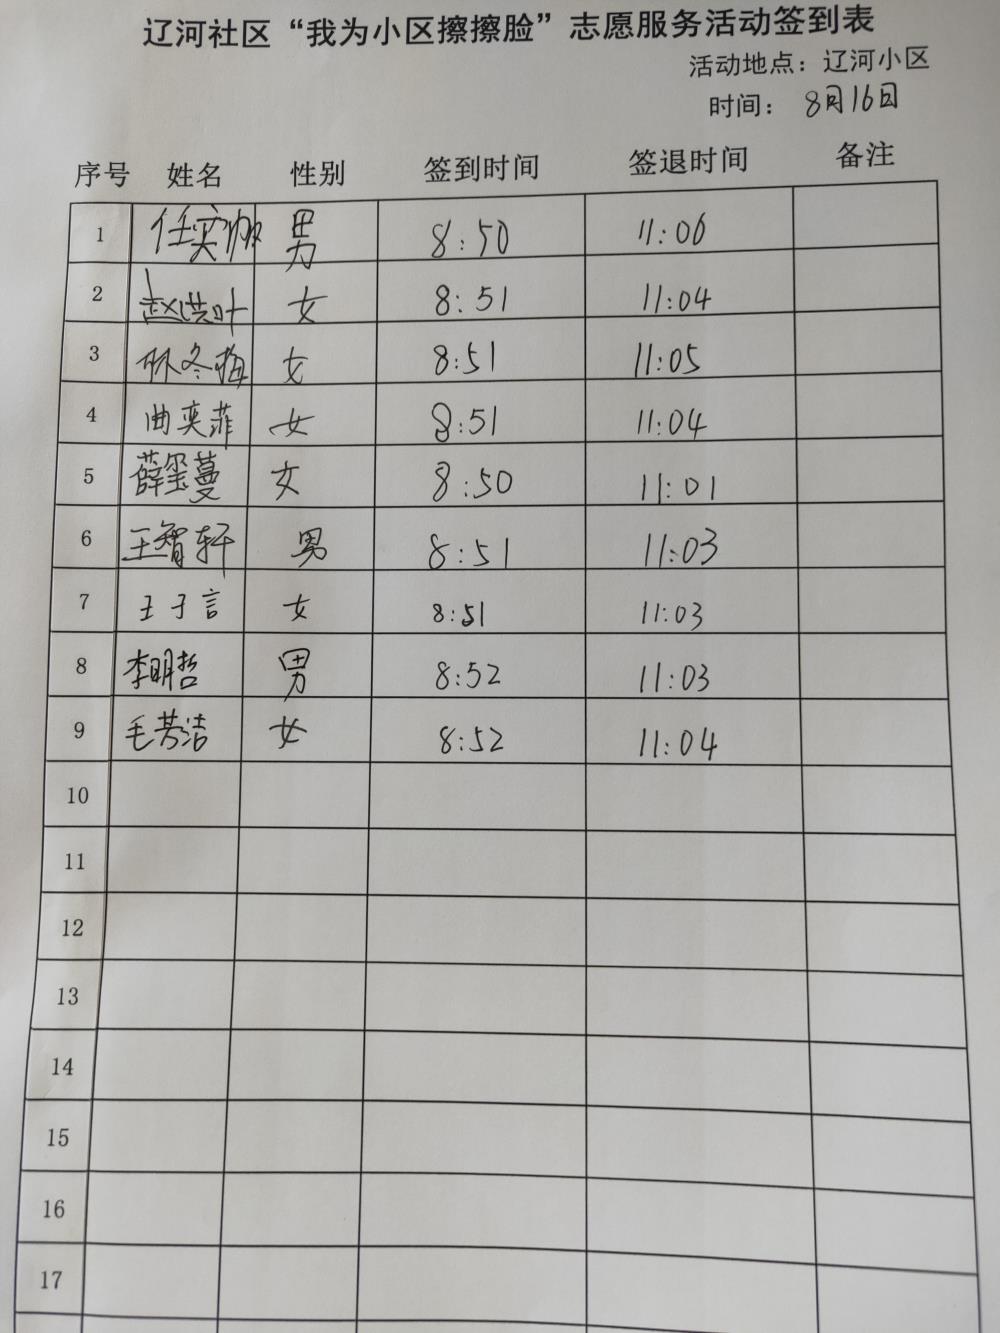 辽河社区“我为小区擦擦脸”志愿服务活动签到表
活动地点：辽河小区
时间： 8月16日
序号 姓名 性别 签到时间 签退时间 备注
1 任奕 男 8:50 11:06
2 赵洪叶 女 8:51 11:04
3 林冬梅 女 8:51 11:05
4 曲奕菲 女 8:51 11:04
5 薛玺蔓 女 8:50 11:01
6 王智轩 男 8:51 11:03
7 王子言 女 8:51 11:03
8 李明哲 男 8:52 11:03
9 毛芳洁 女 8:52 11:04
10
11
12
13
14
15
16
17